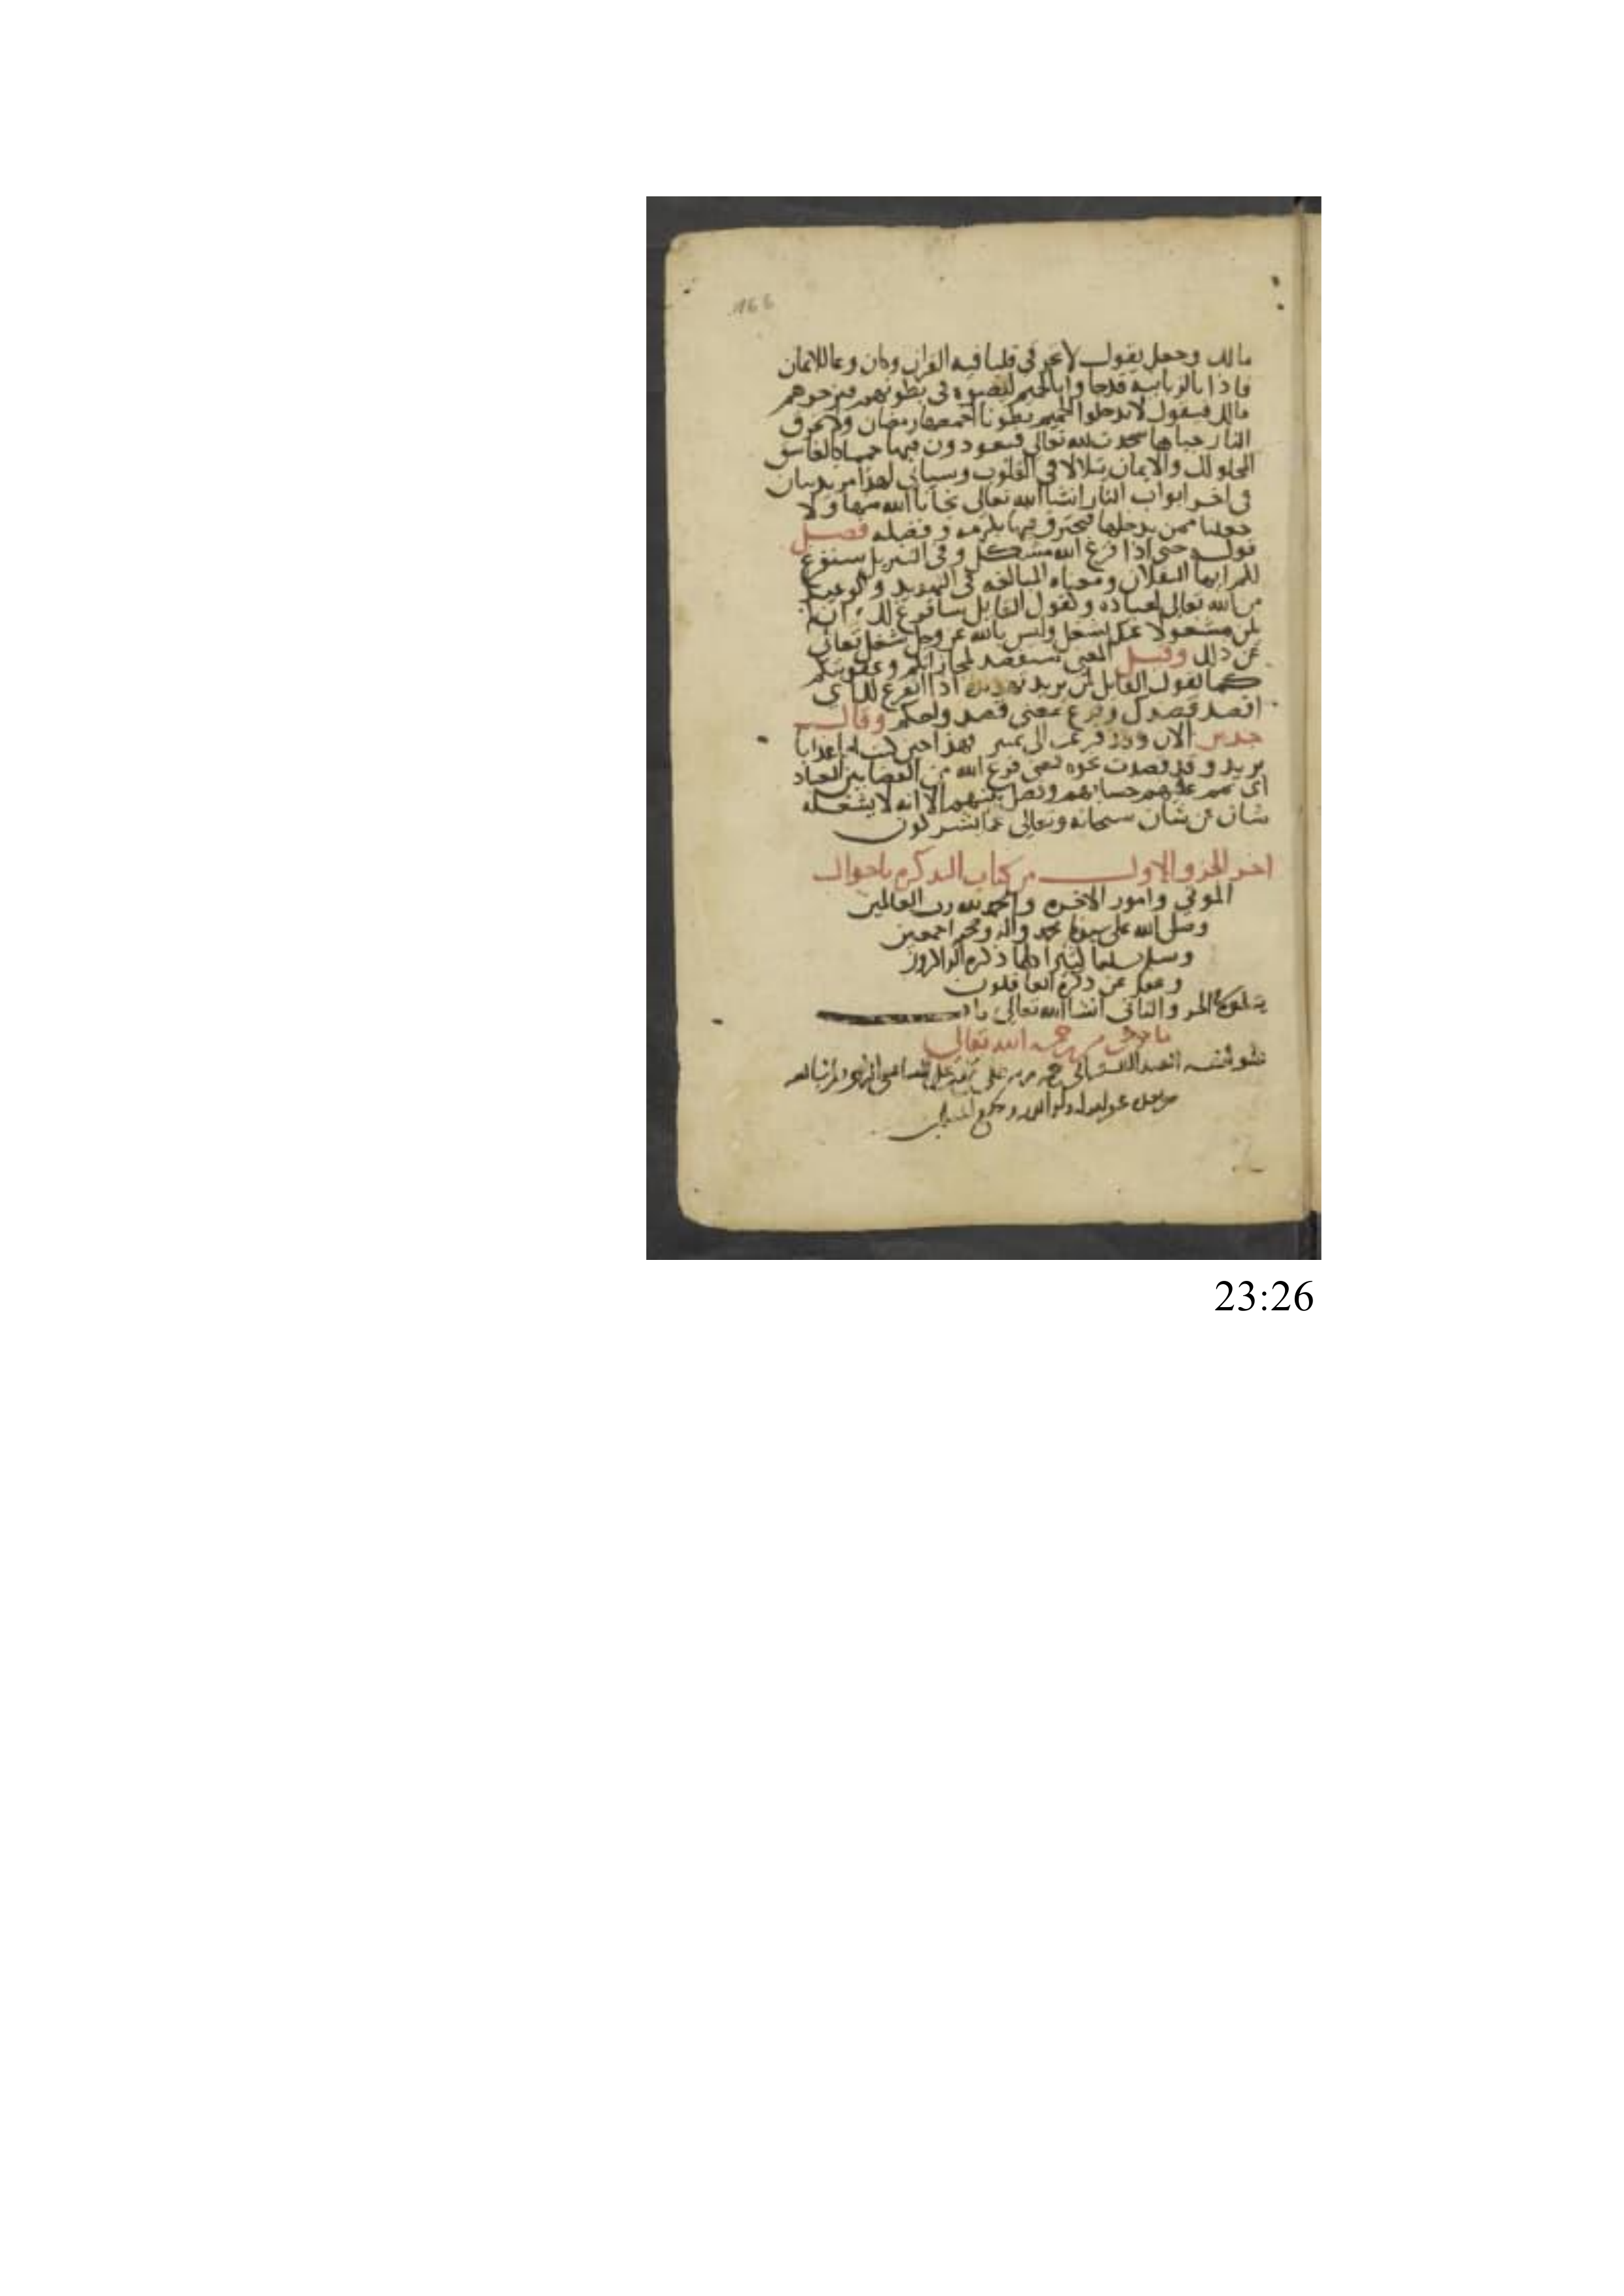 166
مالك وجعل يقول لا تحرقي قلبا فيه القران وكان وعا للايمان
فاذا بالزبانية قد جاوا بالحميم ليصبوه في بطونهم فيزجرهم
مالك فيقول لا تدخلوا الحميم بطونا اخمصها رمضان ولا تحرق
النار جباها سجدت لله تعالى فيعودون فيها حمما كالغاسق
المحلولك والايمان يتلالا في القلوب وسياتي لهذا مزيد بيان
في اخر ابواب النار ان شا الله تعالى نجانا الله منها ولا
جعلنا ممن يدخلها فيحترق فيها بكرمه وفضله فصل
قوله حتى اذا فرغ الله مشكل وفي التنزيل سنفرغ
لكم ايها الثقلان ومعناه المبالغة في التهديد والوعيد
من الله تعالى لعباده وكقول القايل سافرغ لك وان لم
يكن مشغولا عنه بشغل وليس بالله عز وجل شغل تعالى
عن ذلك وقيل المعنى سنقصد لمجازاتكم وعقوبتكم
كما يقول القايل لمن يريد تهديده اذا اتفرغ لك اي
اقصد قصدك وفرغ بمعنى قصد واحكم وقال
جرير الان وقد فرغت الى نمير فهذا حين كنت له عذابا
يريد وقد قصدت نحوه فمعنى فرغ الله من القضا بين العباد
اي تمم عليهم حسابهم وفصل بينهم لانه لا يشغله
شان عن شان سبحانه وتعالى عما يشركون
اخر الجزو الاول من كتاب التذكرة باحوال
الموتى وامور الاخرة والحمد لله رب العالمين
وصلى الله على سيدنا محمد واله وصحبه اجمعين
وسلم تسليما كثيرا كلما ذكره الذاكرون
وغفل عن ذكره الغافلون
يتلوه الجزو الثاني انشا الله تعالى
رحمه الله تعالى